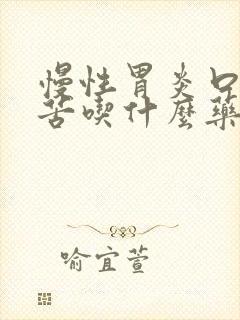 慢性胃炎口
苦喫什麼藥
喻宜萱